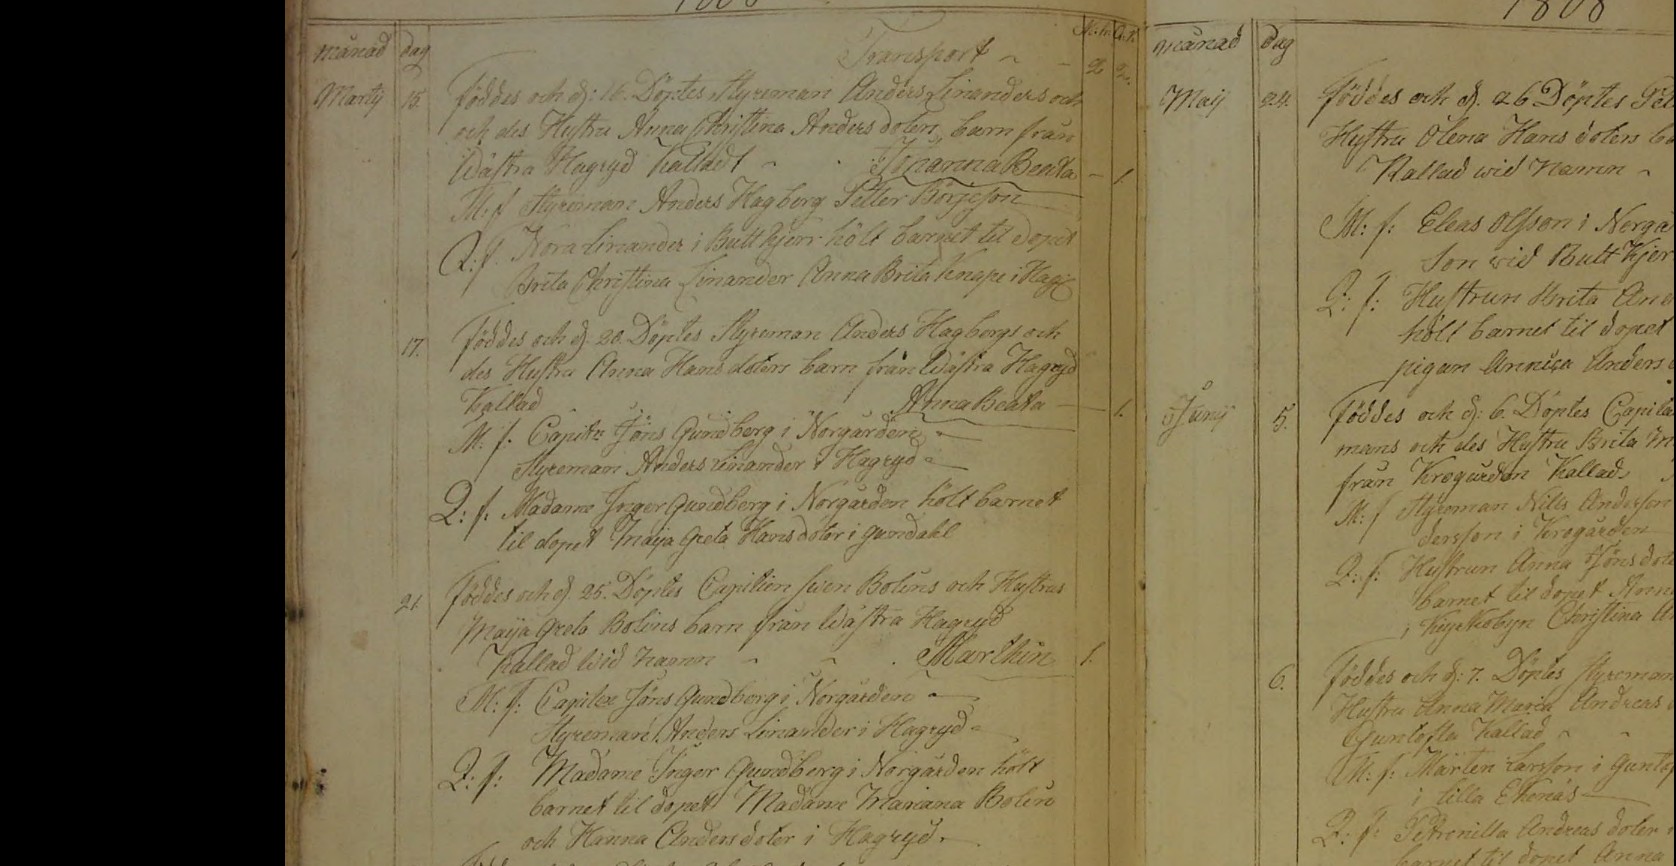 månad dag Transport
Martij 15. föddes och d: 16. Döptes Styreman Anders Linanders och
och des Hustru Anna Christina Anders doters barn från
Wästra Hagryd kalladt Johanna Beata 1.
M: f. Styreman Anders Hagberg Petter Börjeson
Q: f. Nora Linander i Buttkjerr hölt barnet til dopet
Brita Christina Linander Anna Brita Knape i Hag
17. föddes och d. 20. Döptes Styreman Anders Hagbergs och
des Hustru Anna Hans doters barn från Wästra Hagryd
kallad Anna Beata 1.
M: f. Capiten Jöns Gundberg i Norgården
Styreman Anders Linander i Hagryd
Q: f. Madame Inger Gundberg i Norgården hölt barnet
til dopet Maija Greta Hans doter i gundahl
21. föddes och d. 25. Döptes Capitien Swen Bolins och Hustrus
Maija Greta Bolins barn från Wästra Hagryd
kallad wid namn Marthin 1.
M: f: Capiten Jöns Gundberg i Norgården
Styreman Anders Linander i Hagryd
Q: f: Madame Inger Gundberg i Norgården hölt
barnet til dopet Madame Mariana Bolin
och Hanna Anders doter i Hagryd.
1808
månad dag
Maij 24. föddes och d. 26 Döptes
Hustru Olena Hans doters
Kallad wid namn
M: f: Eleas Olsson i Norga
son wid Butt Kjer
Q: f: Hustrun Brita An
hölt barnet til dopet
pigan Annisa Anders
Junij 5. föddes och d: 6. Döptes Capite
mans och des Hustru Brita M
från Krogården Kallad
M: f Styreman Nills Andersson
dersson i Krogården
Q: f: Hustrun Anna Jöns dote
barnet til dopet Ann
i Kyrkobyn Christina
6. föddes och d: 7. Döptes Styreman
Hustru Anna Maria Andreas
Guntofta Kallad
M: f: Mårten Larsson i Guntof
i lilla Ekenäs
Q: f: Petronilla Andreas doter
barnet til dopet Anna